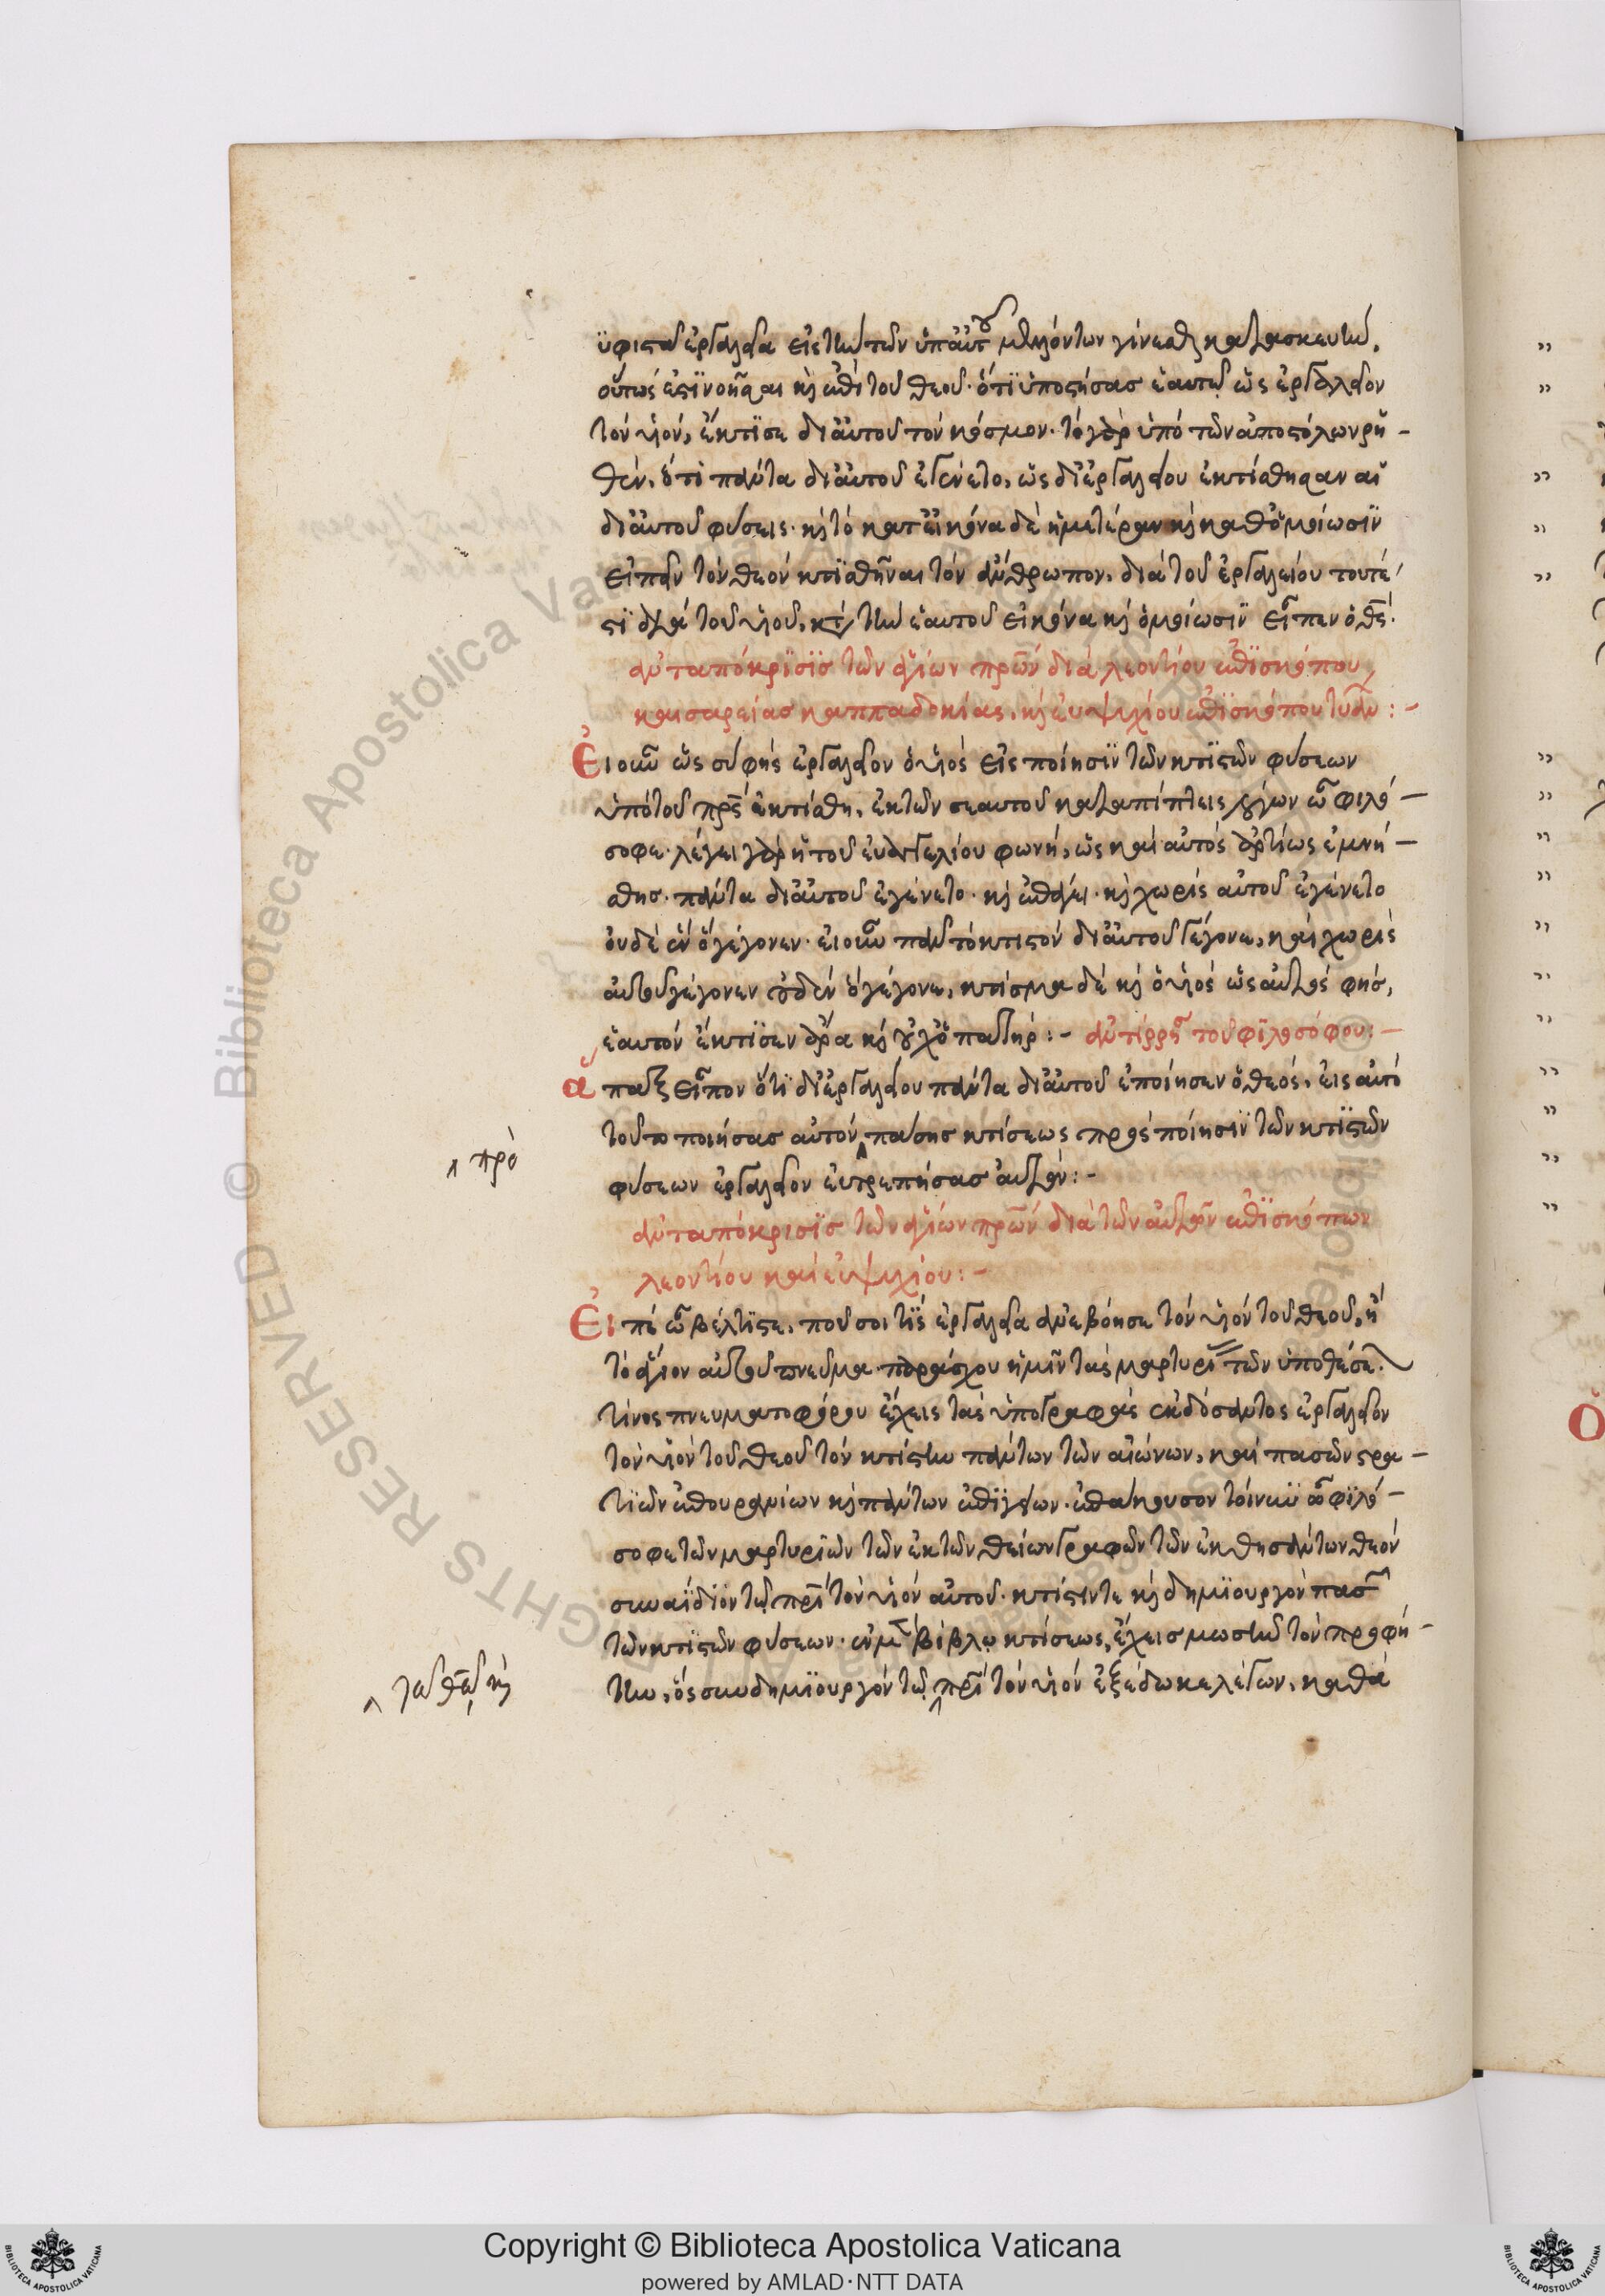 ὑφιστᾶ ἐργαλεῖα εἰς τὴν τῶν ὑπ' αὐτοῦ μελλόντων γίνεσθαι κατασκευήν.
οὕτως ἐστὶ νοῆσαι καὶ ἐπὶ τοῦ θεοῦ· ὅτι ὑποστήσας ἑαυτῷ ὡς ἐργαλεῖον
τὸν υἱὸν, ἔκτισε δι' αὐτοῦ τὸν κόσμον· τὸ γὰρ ὑπὸ τῶν ἀποστόλων ρη-
θέν, ὅτι πάντα δι' αὐτοῦ ἐγένετο, ὡς δι' ἐργαλείου ἐκτίσθησαν αἱ
δι' αὐτοῦ φύσεις· καὶ τὸ κατ' εἰκόνα δὲ ἡμετέραν καὶ καθ' ὁμοίωσιν
εἰπὼν τὸν θεὸν κτισθῆναι τὸν ἄνθρωπον, διὰ τοῦ ἐργαλείου τουτέ
στι διὰ τοῦ υἱοῦ, κατὰ τὴν ἑαυτοῦ εἰκόνα καὶ ὁμοίωσιν εἶπεν ὁ θς·
ἀνταπόκρισις τῶν ἁγίων πρων διὰ λεοντίου ἐπισκόπου
καισαρείας καππαδοκίας, καὶ εὐψυχίου ἐπισκόπου τυάν:-
Εἰ οὖν ὡς σὺ φὴς ἐργαλεῖον ὁ υἱὸς εἰς ποίησιν τῶν κτιστῶν φύσεων
ὑπὸ τοῦ πρς ἐκτίσθη, ἐκ τῶν σεαυτοῦ καταπίπτεις λόγων ὦ φιλό-
σοφε· λέγει γὰρ ἡ τοῦ εὐαγγελίου φωνή, ὡς καὶ αὐτὸς ἀρτίως ἐμνή-
σθης· πάντα δι' αὐτοῦ ἐγένετο· καὶ ἐπάγει· καὶ χωρὶς αὐτοῦ ἐγένετο
οὐδὲ ἓν ὃ γέγονεν· εἰ οὖν πᾶν τὸ κτιστὸν δι' αὐτοῦ γέγονε, καὶ χωρὶς
αὐτοῦ γέγονεν οὐδὲν ὃ γέγονε, κτίσμα δὲ καὶ ὁ υἱὸς ὡς αὐτὸς φής,
ἑαυτὸν ἔκτισεν ἄρα καὶ οὐχ ὁ πατήρ:- ἀντίρρη τοῦ φιλοσόφου:-
ἅπαξ εἶπον ὅτι δι' ἐργαλείου πάντα δι' αὐτοῦ ἐποίησεν ὁ θεός, εἰς αὐτὸ
τοῦτο ποιήσας αὐτὸν, πάσης κτίσεως πρὸς ποίησιν τῶν κτιστῶν
πρὸ
φύσεων ἐργαλεῖον εὐτρεπήσας αὐτόν:-
ἀνταπόκρισις τῶν ἁγίων πρων διὰ τῶν αὐτῶν ἐπισκόπων
λεοντίου καὶ εὐψυχίου:-
Εἰπὲ ὦ βέλτιστε, ποῦ σοί τις ἐργαλεῖα ἀνεβόησε τὸν υἱὸν τοῦ θεοῦ, ἢ
τὸ ἅγιον αὐτοῦ πνεῦμα· παράσχου ἡμῖν τὰς μαρτυρί τῶν ὑποθέσε.
τίνος πνευματοφόρου ἔχεις τὰς ὑπογραφὰς ἐκδόσαντος ἐργαλεῖον
τὸν υἱὸν τοῦ θεοῦ τὸν κτίστην πάντων τῶν αἰώνων, καὶ πασῶν στρα-
τιῶν ἐπουρανίων καὶ πάντων ἐπιγείων· ἐπάκουσον τοίνυν ὦ φιλό-
σοφε τῶν μαρτυριῶν τῶν ἐκ τῶν θείων γραφῶν τῶν ἐκθησάντων θεὸν
συναΐδιον τῷ πρὶ τὸν υἱὸν αὐτοῦ· κτίστιν τε καὶ δημιουργὸν πασ
τῶν κτιστῶν φύσεων· ἐν μὲν βίβλῳ κτίσεως, ἔχεις μωσῆν τὸν προφή-
την, ὃς συνδημιουργὸν τῷ πρὶ τὸν υἱὸν ἐξέδωκε λέγων, καθὰ